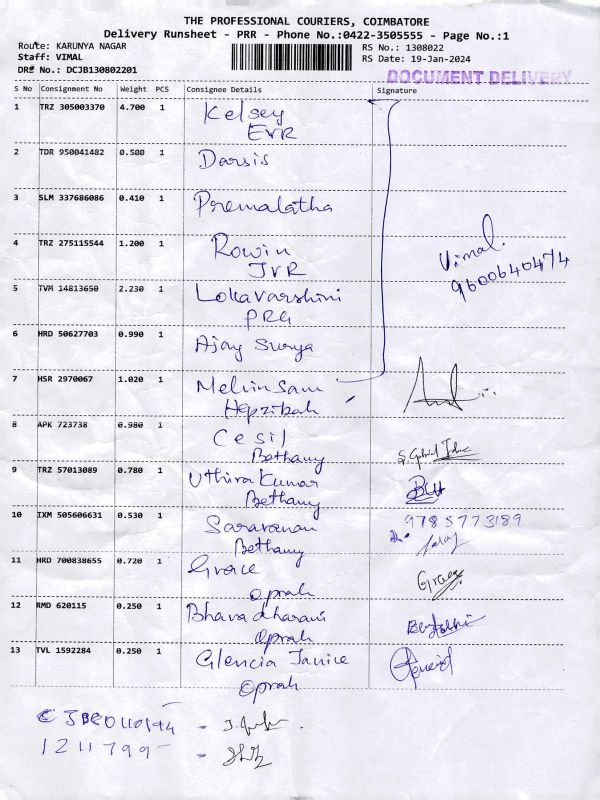 THE PROFESSIONAL COURIERS, COIMBATORE
Delivery Runsheet - PRR - Phone No.:0422-3505555 - Page No.:1
Route: KARUNYA NAGAR
RS No.: 1308022
Staff: VIMAL
RS Date: 19-Jan-2024
DRS No.: DCJB130802201
DOCUMENT DELIVERY
S No Consignment No Weight PCS Consignee Details Signature
1 TRZ 305003370 4.700 1 Kelsey
EVR
2 TDR 950041482 0.500 1 Darsis
3 SLM 337686086 0.410 1 Premalatha
4 TRZ 275115544 1.200 1 Rowin
JVR
Vimal.
9600640474
5 TVM 14813650 2.230 1 Lokavarshini
PRG
6 HRD 50627703 0.990 1 Ajay Surya
7 HSR 2970067 1.020 1 Melvin Sam
Hepzibah
8 APK 723738 0.980 1 Cesil
Bethany
9 TRZ 57013089 0.780 1 Uthira Kumar
Bethany
10 IXM 505606631 0.530 1 Saravanan 9785773189
Bethany
11 HRD 700838655 0.720 1 Grace
Oprah
12 RMD 620115 0.250 1 Bhavadharani
Oprah
13 TVL 1592284 0.250 1 Glencia Janice
Oprah
1211799